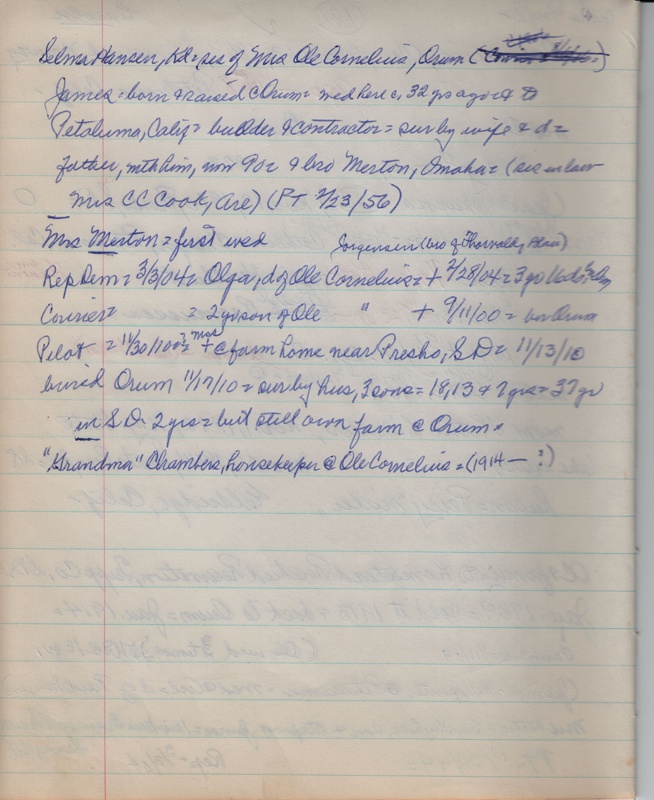 Selma Hansen, Kd = sis of Mrs Ole Cornelius, Orum (
James = born & raised @ Orum = wed here c, 32 yrs ago &
Petaluma, Calif = builder & contractor = sur by wife & d =
father, with him, now 90 & bro Merton, Omaha = (sis in law
Mrs C C Cook, are) (PT 2/23/56)
Mrs Merton = first wed
Jorgensen (bro of Thorvald, Blair)
Rep Dem = 3/3/04 = Olga, d of Ole Cornelius = + 2/28/04 = 3 yo
Courier = = 2 yo son of Ole " + 9/11/00 = bur Orum
Pilot = 11/30/10 = + @ farm home near Presho, S D = 11/13/10
buried Orum 11/17/10 = sur by hus, 3 sons = 18, 13 & 7 yrs = 37 yr
in S D 2 yrs = but still own farm @ Orum =
"Grandma" Chambers, housekeeper @ Ole Cornelius = (1914 — ?)